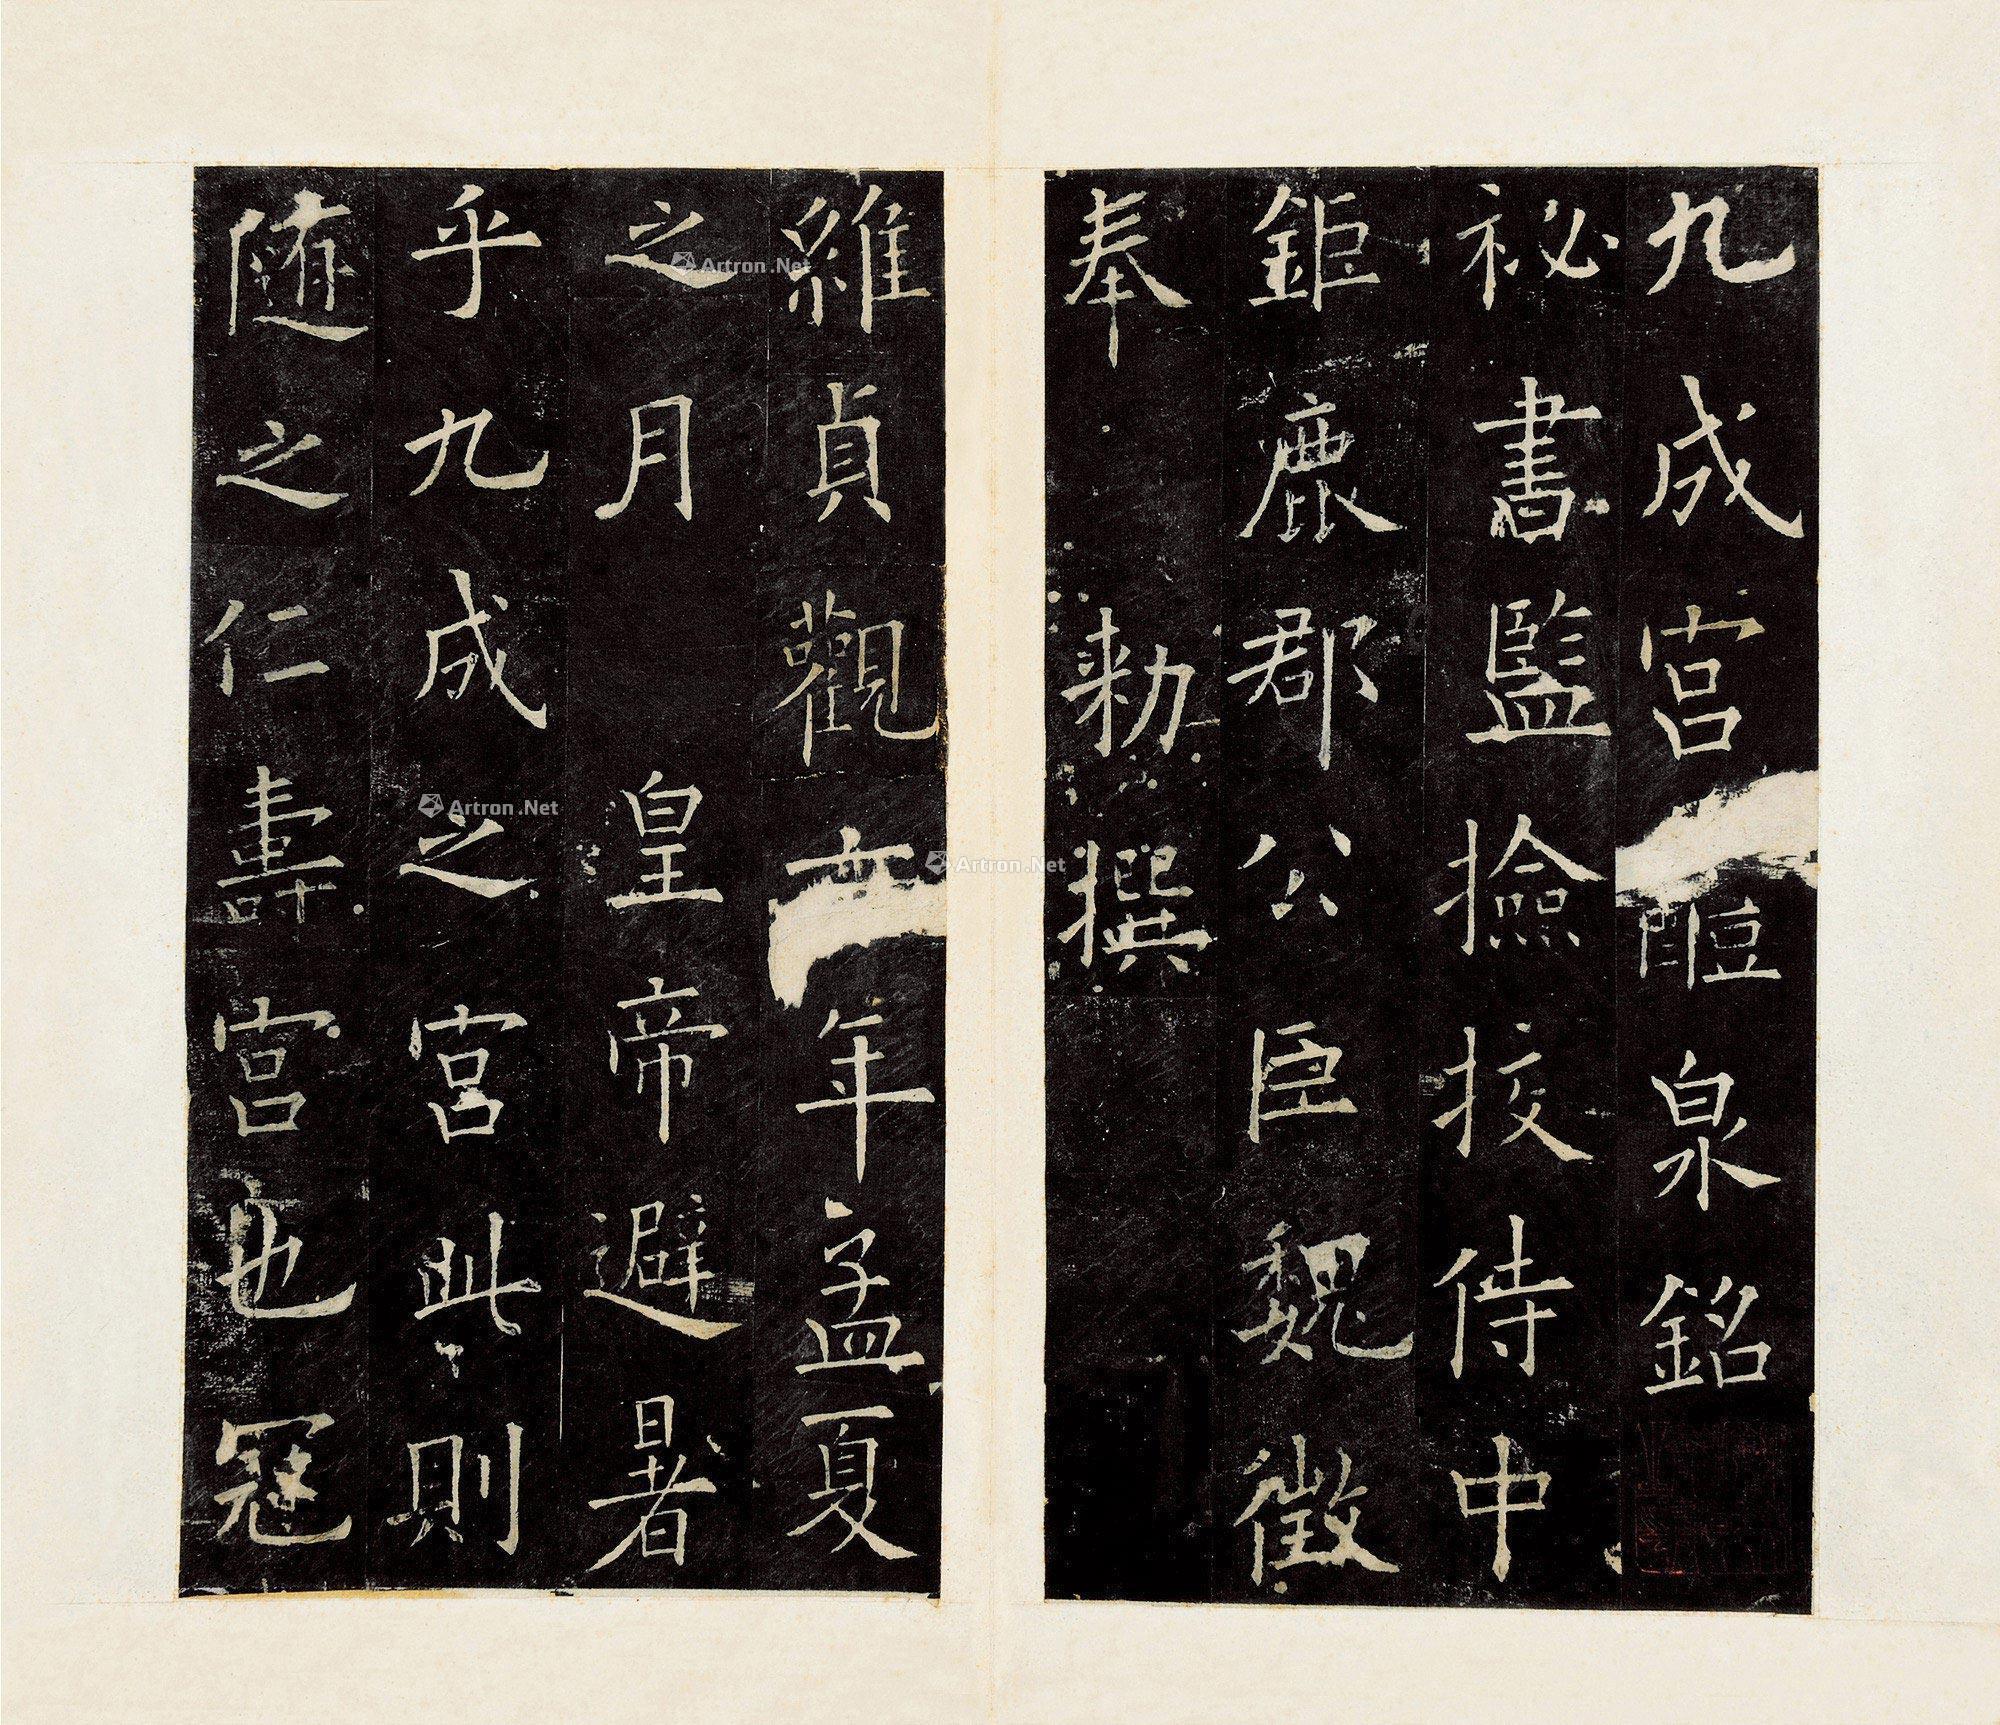 九成宮醴泉銘
秘書監撿挍侍中
鉅鹿郡公臣魏徵
奉 勅撰
維貞觀六年孟夏
之月 皇帝避暑
乎九成之宮此則
随之仁壽宮也冠
Artron.Net
Artron.Net
Artron.Net